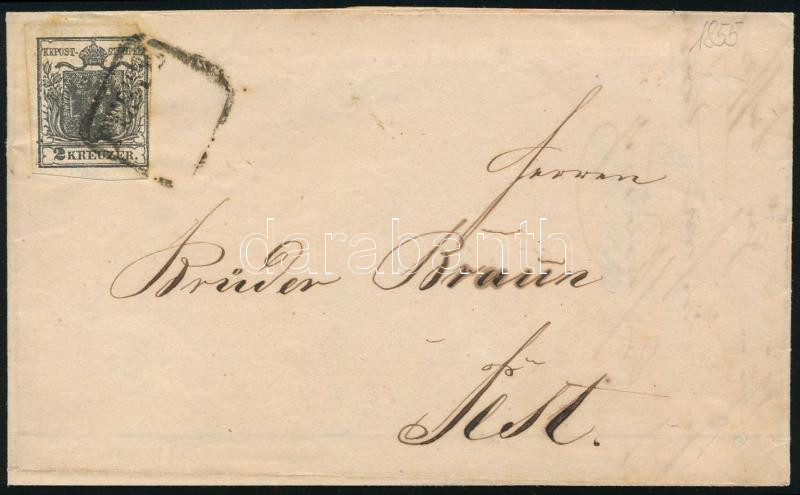 KKPOST-STEMPEL
2 KREUZER.
1855
Herren
Brüder Braun
Pest.
darabanth